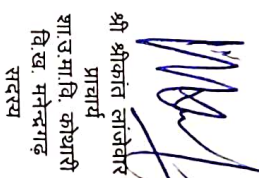 श्री श्रीकांत लांजेवार
प्राचार्य
शा.उ.मा.वि. कोथारी
वि.ख. मनेन्द्रगढ़
सदस्य